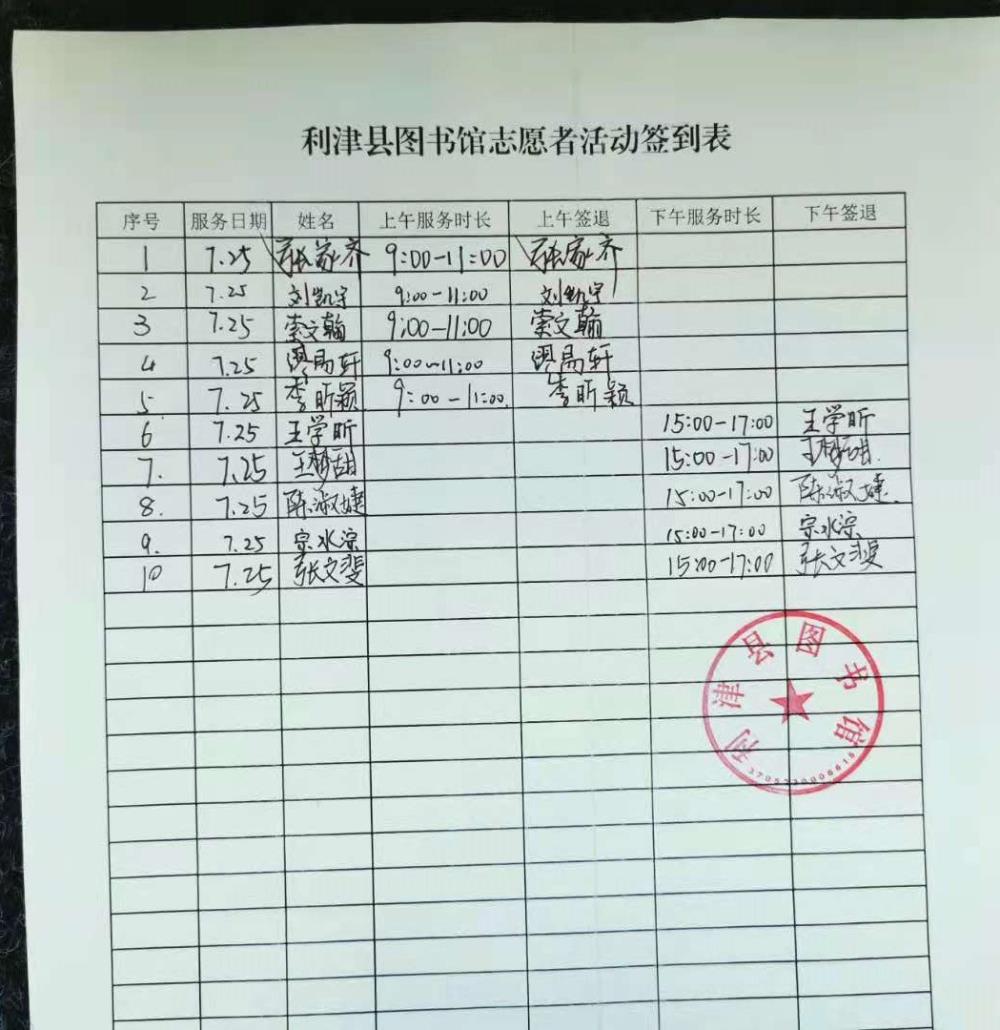 利津县图书馆志愿者活动签到表
序号 服务日期 姓名 上午服务时长 上午签退 下午服务时长 下午签退
1 7.25 张家齐 9:00-11:00 张家齐
2 7.25 刘凯宇 9:00-11:00 刘凯宇
3 7.25 索文翰 9:00-11:00 索文翰
4 7.25 易轩 9:00-11:00 易轩
5. 7.25 李昕颖 9:00-11:00. 李昕颖
6 7.25 王学昕 15:00-17:00 王学昕
7. 7.25 王梦甜 15:00-17:00 王梦甜.
8. 7.25 陈淑婕 15:00-17:00 陈淑婕.
9. 7.25 宗水淙 15:00-17:00 宗水淙
10 7.25 张文斐 15:00-17:00 张文斐
利津县图书馆